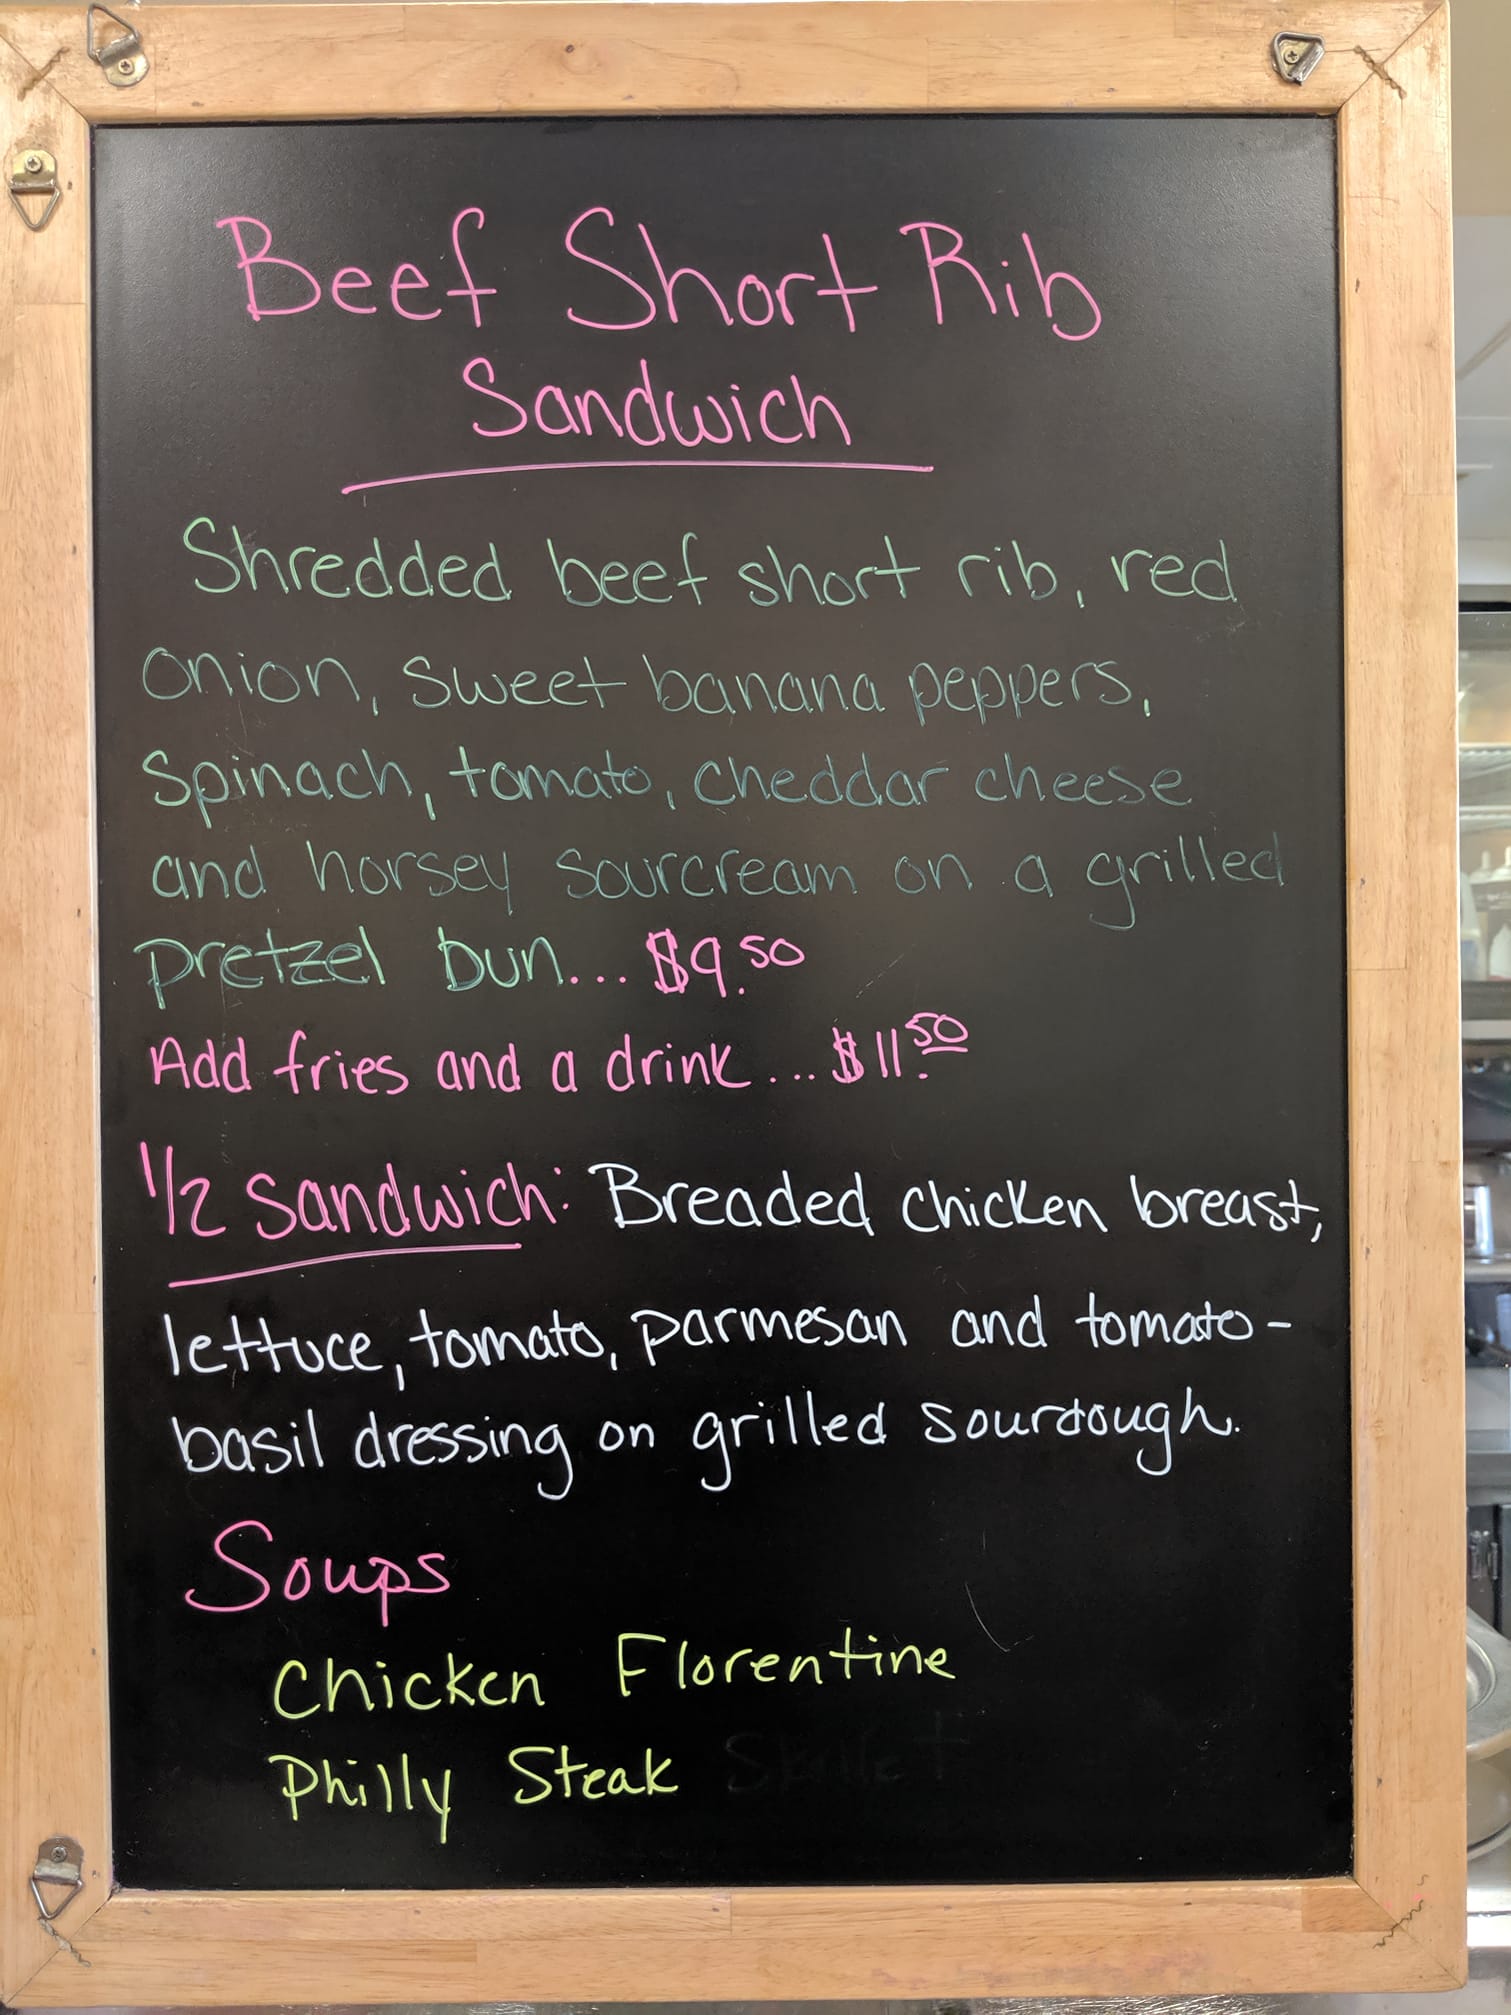 Beef Short Rib
Sandwich
Shredded beef short rib, red
onion, sweet banana peppers,
spinach, tomato, cheddar cheese
and horsey sourcream on a grilled
pretzel bun... $9.50
Add fries and a drink... $11.50
1/2 sandwich: Breaded chicken breast,
lettuce, tomato, parmesan and tomato-
basil dressing on grilled sourdough.
Soups
Chicken Florentine
Philly Steak